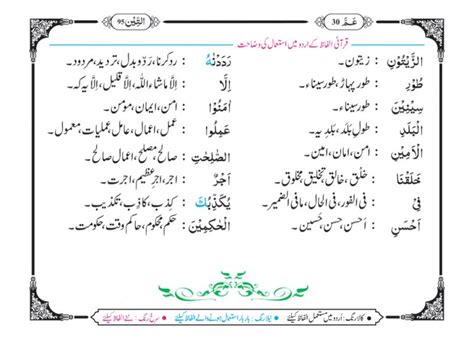 عَمَّ 30
اَلتِّيْن 95
قرآنی الفاظ کے اردو میں استعمال کی وضاحت
الزَّيْتُوْنِ : زیتون۔
رَدَدْنٰهُ : رد کرنا، ردّ و بدل، تردید، مردود۔
طُوْرِ : طور پہاڑ، طورِ سیناء۔
اِلَّا : اِلّا ماشاءاللہ، اِلّا قلیل، اِلّا یہ کہ۔
سِيْنِيْنَ : طورِ سیناء۔
اٰمَنُوْا : امن، ایمان، مؤمن۔
الْبَلَدِ : طولِ بلد، بلدیہ۔
عَمِلُوا : عمل، اعمال، عامل، عملیات، معمول۔
الْاَمِيْنِ : امن، امان، امین۔
الصّٰلِحٰتِ : صالح، مصلح، اعمال صالح۔
خَلَقْنَا : خلق، خالق، تخلیق، مخلوق۔
اَجْرٌ : اجر، اجرِ عظیم، اجرت۔
فِيْ : فی الفور، فی الحال، مافی الضمیر۔
يُكَذِّبُكَ : کذب، کاذب، تکذیب۔
اَحْسَنِ : احسن، حسن، حسین۔
الْحٰكِمِيْنَ : حکم، محکوم، حاکم وقت، حکومت۔
• کالا رنگ : اُردو میں مستعمل الفاظ کیلئے • نیلا رنگ : بار بار استعمال ہونے والے الفاظ کیلئے • سرخ رنگ : نئے الفاظ کیلئے